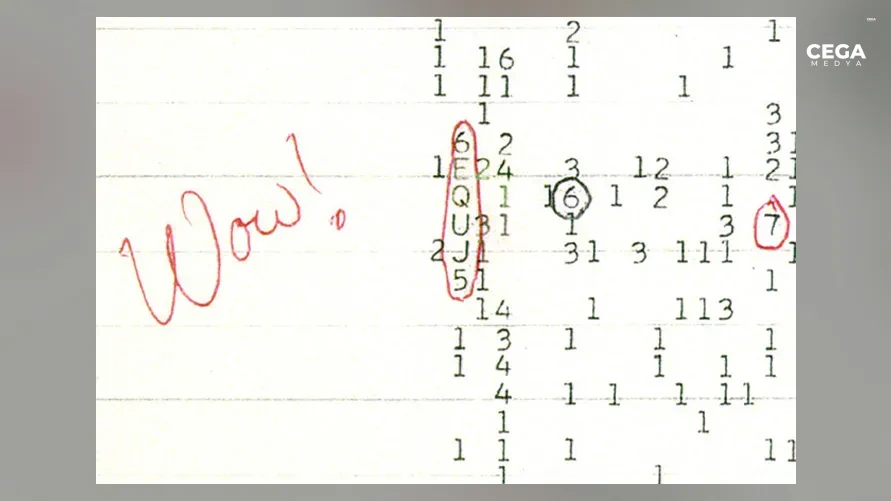 CEGA
MEDYA
Wow!
1 2 1
1 16 1 1
1 11 1 1
1 3
6 2 31
1E24 3 12 1 21
Q 1 16 1 2 1 1
U31 1 3 7
2J1 31 3 111 1
51 1
14 1 113
1 3 1 1 1
1 4 1 1 1
4 1 1 1 11
1 1
1 1 1 11
1 1